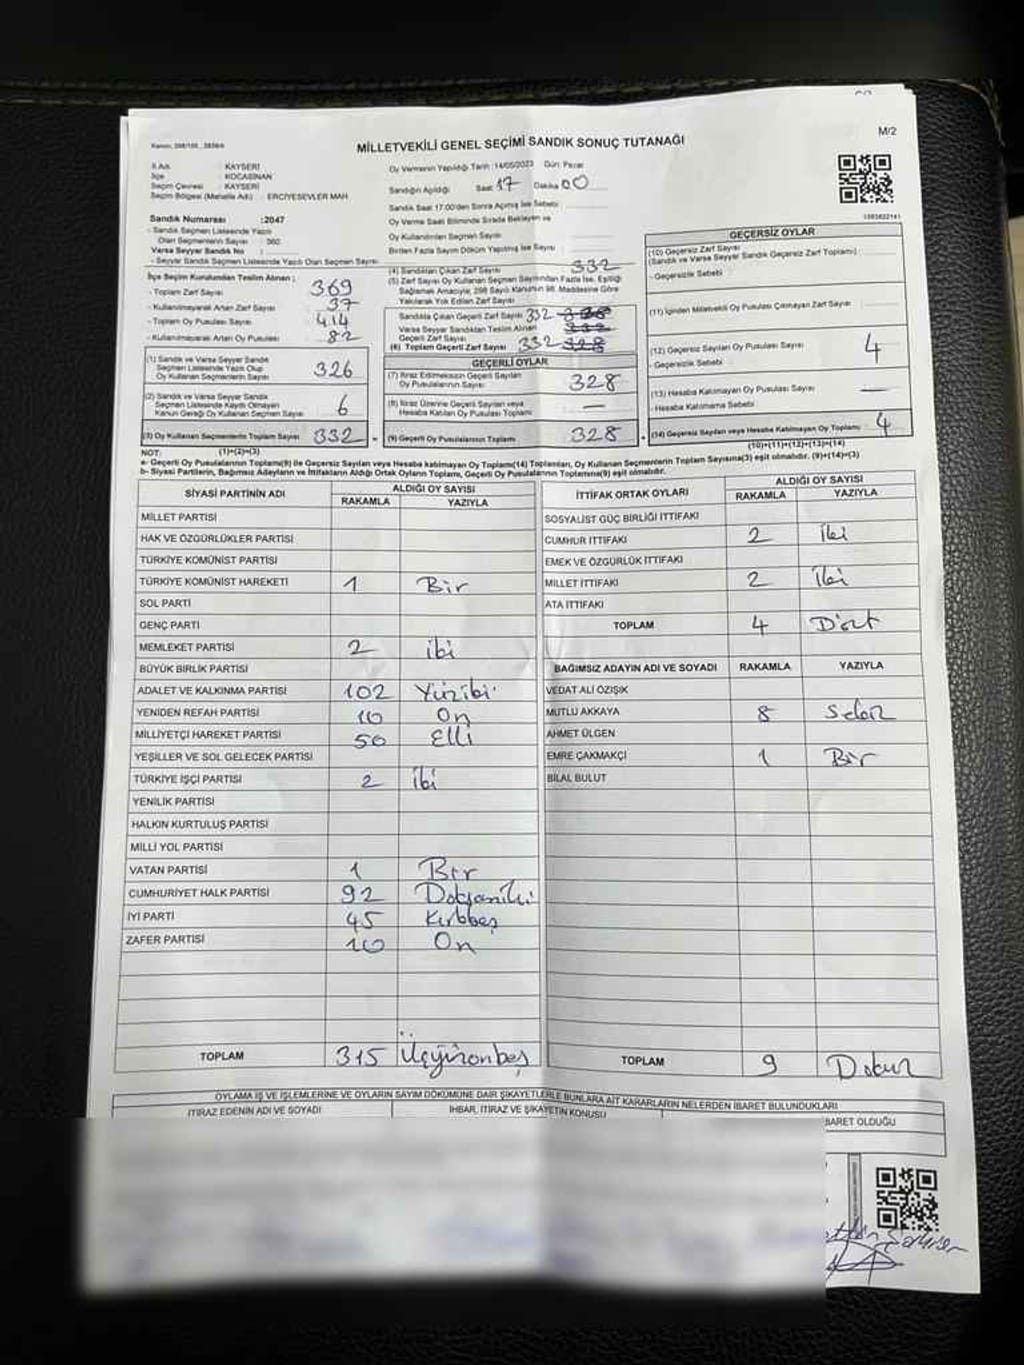 M/2
MİLLETVEKİLİ GENEL SEÇİMİ SANDIK SONUÇ TUTANAĞI
İl Adı : KAYSERİ
İlçe : KOCASİNAN
Seçim Çevresi : KAYSERİ
Seçim Bölgesi (Mahalle Adı) : ERCİYESEVLER MAH
Sandık Numarası :2047
- Sandık Seçmen Listesinde Yazılı
Olan Seçmenlerin Sayısı : 360
Varsa Seyyar Sandık No :
- Seyyar Sandık Seçmen Listesinde Yazılı Olan Seçmen Sayısı
Oy Vermenin Yapıldığı Tarih :14/05/2023 Gün: Pazar
Sandığın Açıldığı Saat 17 Dakika 00
Sandık Saat 17.00'den Sonra Açılmış İse Sebebi
Oy Verme Saati Bitiminde Sırada Bekleyen ve
Oy Kullandırılan Seçmen Sayısı
Birden Fazla Sayım Döküm Yapılmış İse Sayısı
İlçe Seçim Kurulundan Teslim Alınan :
- Toplam Zarf Sayısı 369
- Kullanılmayarak Artan Zarf Sayısı 37
- Toplam Oy Pusulası Sayısı 414
- Kullanılmayarak Artan Oy Pusulası 82
(1) Sandık ve Varsa Seyyar Sandık
Seçmen Listesinde Yazılı Olup
Oy Kullanan Seçmenlerin Sayısı 326
(2) Sandık ve Varsa Seyyar Sandık
Seçmen Listesinde Kaydı Olmayan
Kanun Gereği Oy Kullanan Seçmen Sayısı 6
(3) Oy Kullanan Seçmenlerin Toplam Sayısı 332
(1)+(2)=(3)
(4) Sandıktan Çıkan Zarf Sayısı 332
(5) Zarf Sayısı Oy Kullanan Seçmen Sayısından Fazla İse, Eşitliği
Sağlamak Amacıyla, 298 Sayılı Kanunun 98. Maddesine Göre
Yakılarak Yok Edilen Zarf Sayısı
Sandıkta Çıkan Geçerli Zarf Sayısı 332 328
Varsa Seyyar Sandıktan Teslim Alınan
Geçerli Zarf Sayısı 332
(6) Toplam Geçerli Zarf Sayısı 332 328
GEÇERLİ OYLAR
(7) İtiraz Edilmeksizin Geçerli Sayılan
Oy Pusulalarının Sayısı 328
(8) İtiraz Üzerine Geçerli Sayılan veya
Hesaba Katılan Oy Pusulası Toplamı —
(9) Geçerli Oy Pusulalarının Toplamı 328
GEÇERSİZ OYLAR
(10) Geçersiz Zarf Sayısı
(Sandık ve Varsa Seyyar Sandık Geçersiz Zarf Toplamı)
- Geçersizlik Sebebi
(11) İçinden Milletvekili Oy Pusulası Çıkmayan Zarf Sayısı
(12) Geçersiz Sayılan Oy Pusulası Sayısı 4
- Geçersizlik Sebebi
(13) Hesaba Katılmayan Oy Pusulası Sayısı —
- Hesaba Katılmama Sebebi
(14) Geçersiz Sayılan veya Hesaba Katılmayan Oy Toplamı 4
(10)+(11)+(12)+(13)=(14)
NOT:
a- Geçerli Oy Pusulalarının Toplamı(9) ile Geçersiz Sayılan veya Hesaba katılmayan Oy Toplamı(14) Toplamları, Oy Kullanan Seçmenlerin Toplam Sayısına(3) eşit olmalıdır. (9)+(14)=(3)
b- Siyasi Partilerin, Bağımsız Adayların ve İttifakların Aldığı Oy Ortak Oyların Toplamı, Geçerli Oy Pusulalarının Toplamına(9) eşit olmalıdır.
SİYASİ PARTİNİN ADI ALDIĞI OY SAYISI
RAKAMLA YAZIYLA
MİLLET PARTİSİ
HAK VE ÖZGÜRLÜKLER PARTİSİ
TÜRKİYE KOMÜNİST PARTİSİ
TÜRKİYE KOMÜNİST HAREKETİ 1 Bir
SOL PARTİ
GENÇ PARTİ
MEMLEKET PARTİSİ 2 iki
BÜYÜK BİRLİK PARTİSİ
ADALET VE KALKINMA PARTİSİ 102 Yüziki
YENİDEN REFAH PARTİSİ 10 On
MİLLİYETÇİ HAREKET PARTİSİ 50 Elli
YEŞİLLER VE SOL GELECEK PARTİSİ
TÜRKİYE İŞÇİ PARTİSİ 2 iki
YENİLİK PARTİSİ
HALKIN KURTULUŞ PARTİSİ
MİLLİ YOL PARTİSİ
VATAN PARTİSİ 1 Bir
CUMHURİYET HALK PARTİSİ 92 Doksaniki
İYİ PARTİ 45 Kırkbeş
ZAFER PARTİSİ 10 On
TOPLAM 315 Üçyüzonbeş
İTTİFAK ORTAK OYLARI ALDIĞI OY SAYISI
RAKAMLA YAZIYLA
SOSYALİST GÜÇ BİRLİĞİ İTTİFAKI
CUMHUR İTTİFAKI 2 iki
EMEK VE ÖZGÜRLÜK İTTİFAKI
MİLLET İTTİFAKI 2 iki
ATA İTTİFAKI
TOPLAM 4 Dört
BAĞIMSIZ ADAYIN ADI VE SOYADI RAKAMLA YAZIYLA
VEDAT ALİ ÖZIŞIK
MUTLU AKKAYA 8 Sekiz
AHMET ÜLGEN
EMRE ÇAKMAKÇİ 1 Bir
BİLAL BULUT
TOPLAM 9 Dokuz
OYLAMA İŞ VE İŞLEMLERİNE VE OYLARIN SAYIM DÖKÜMÜNE DAİR ŞİKAYETLERLE BUNLARA AİT KARARLARIN NELERDEN İBARET BULUNDUKLARI
İTİRAZ EDENİN ADI VE SOYADI İHBAR, İTİRAZ VE ŞİKAYETİN KONUSU BARET OLDUĞU